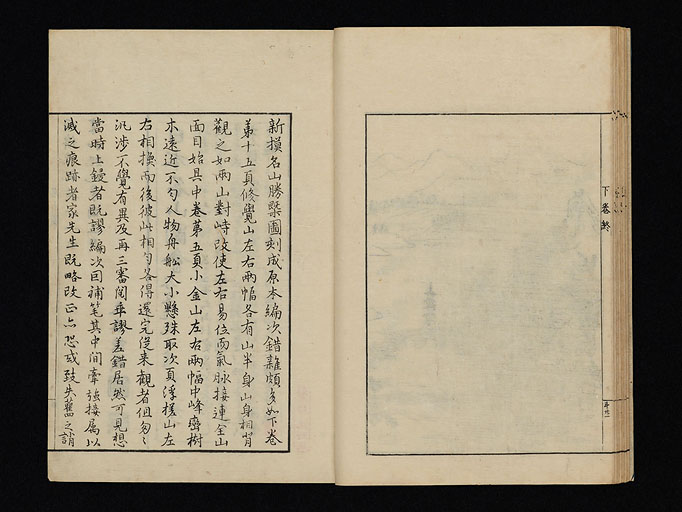 下卷終
新摸名山勝槩圖刻成原本編次錯雜頗多如下卷
第十五頁修覺山左右兩幅各有山半身山身相背
觀之如兩山對峙改使左右易位而氣脉接連全山
面目始具中卷第五頁小金山左右兩幅中峰巒樹
木遠近不勻人物舟舩大小懸殊取次頁浮槎山左
右相換而後彼此相勻各得還完從來觀者但匆〻
汎涉不覺有異及再三審閱乖謬差錯居然可見想
當時上鋟者既謬編次因補筆其中間牽強接屬以
滅之痕跡者家先生既略改正亦恐或致失舊之誚